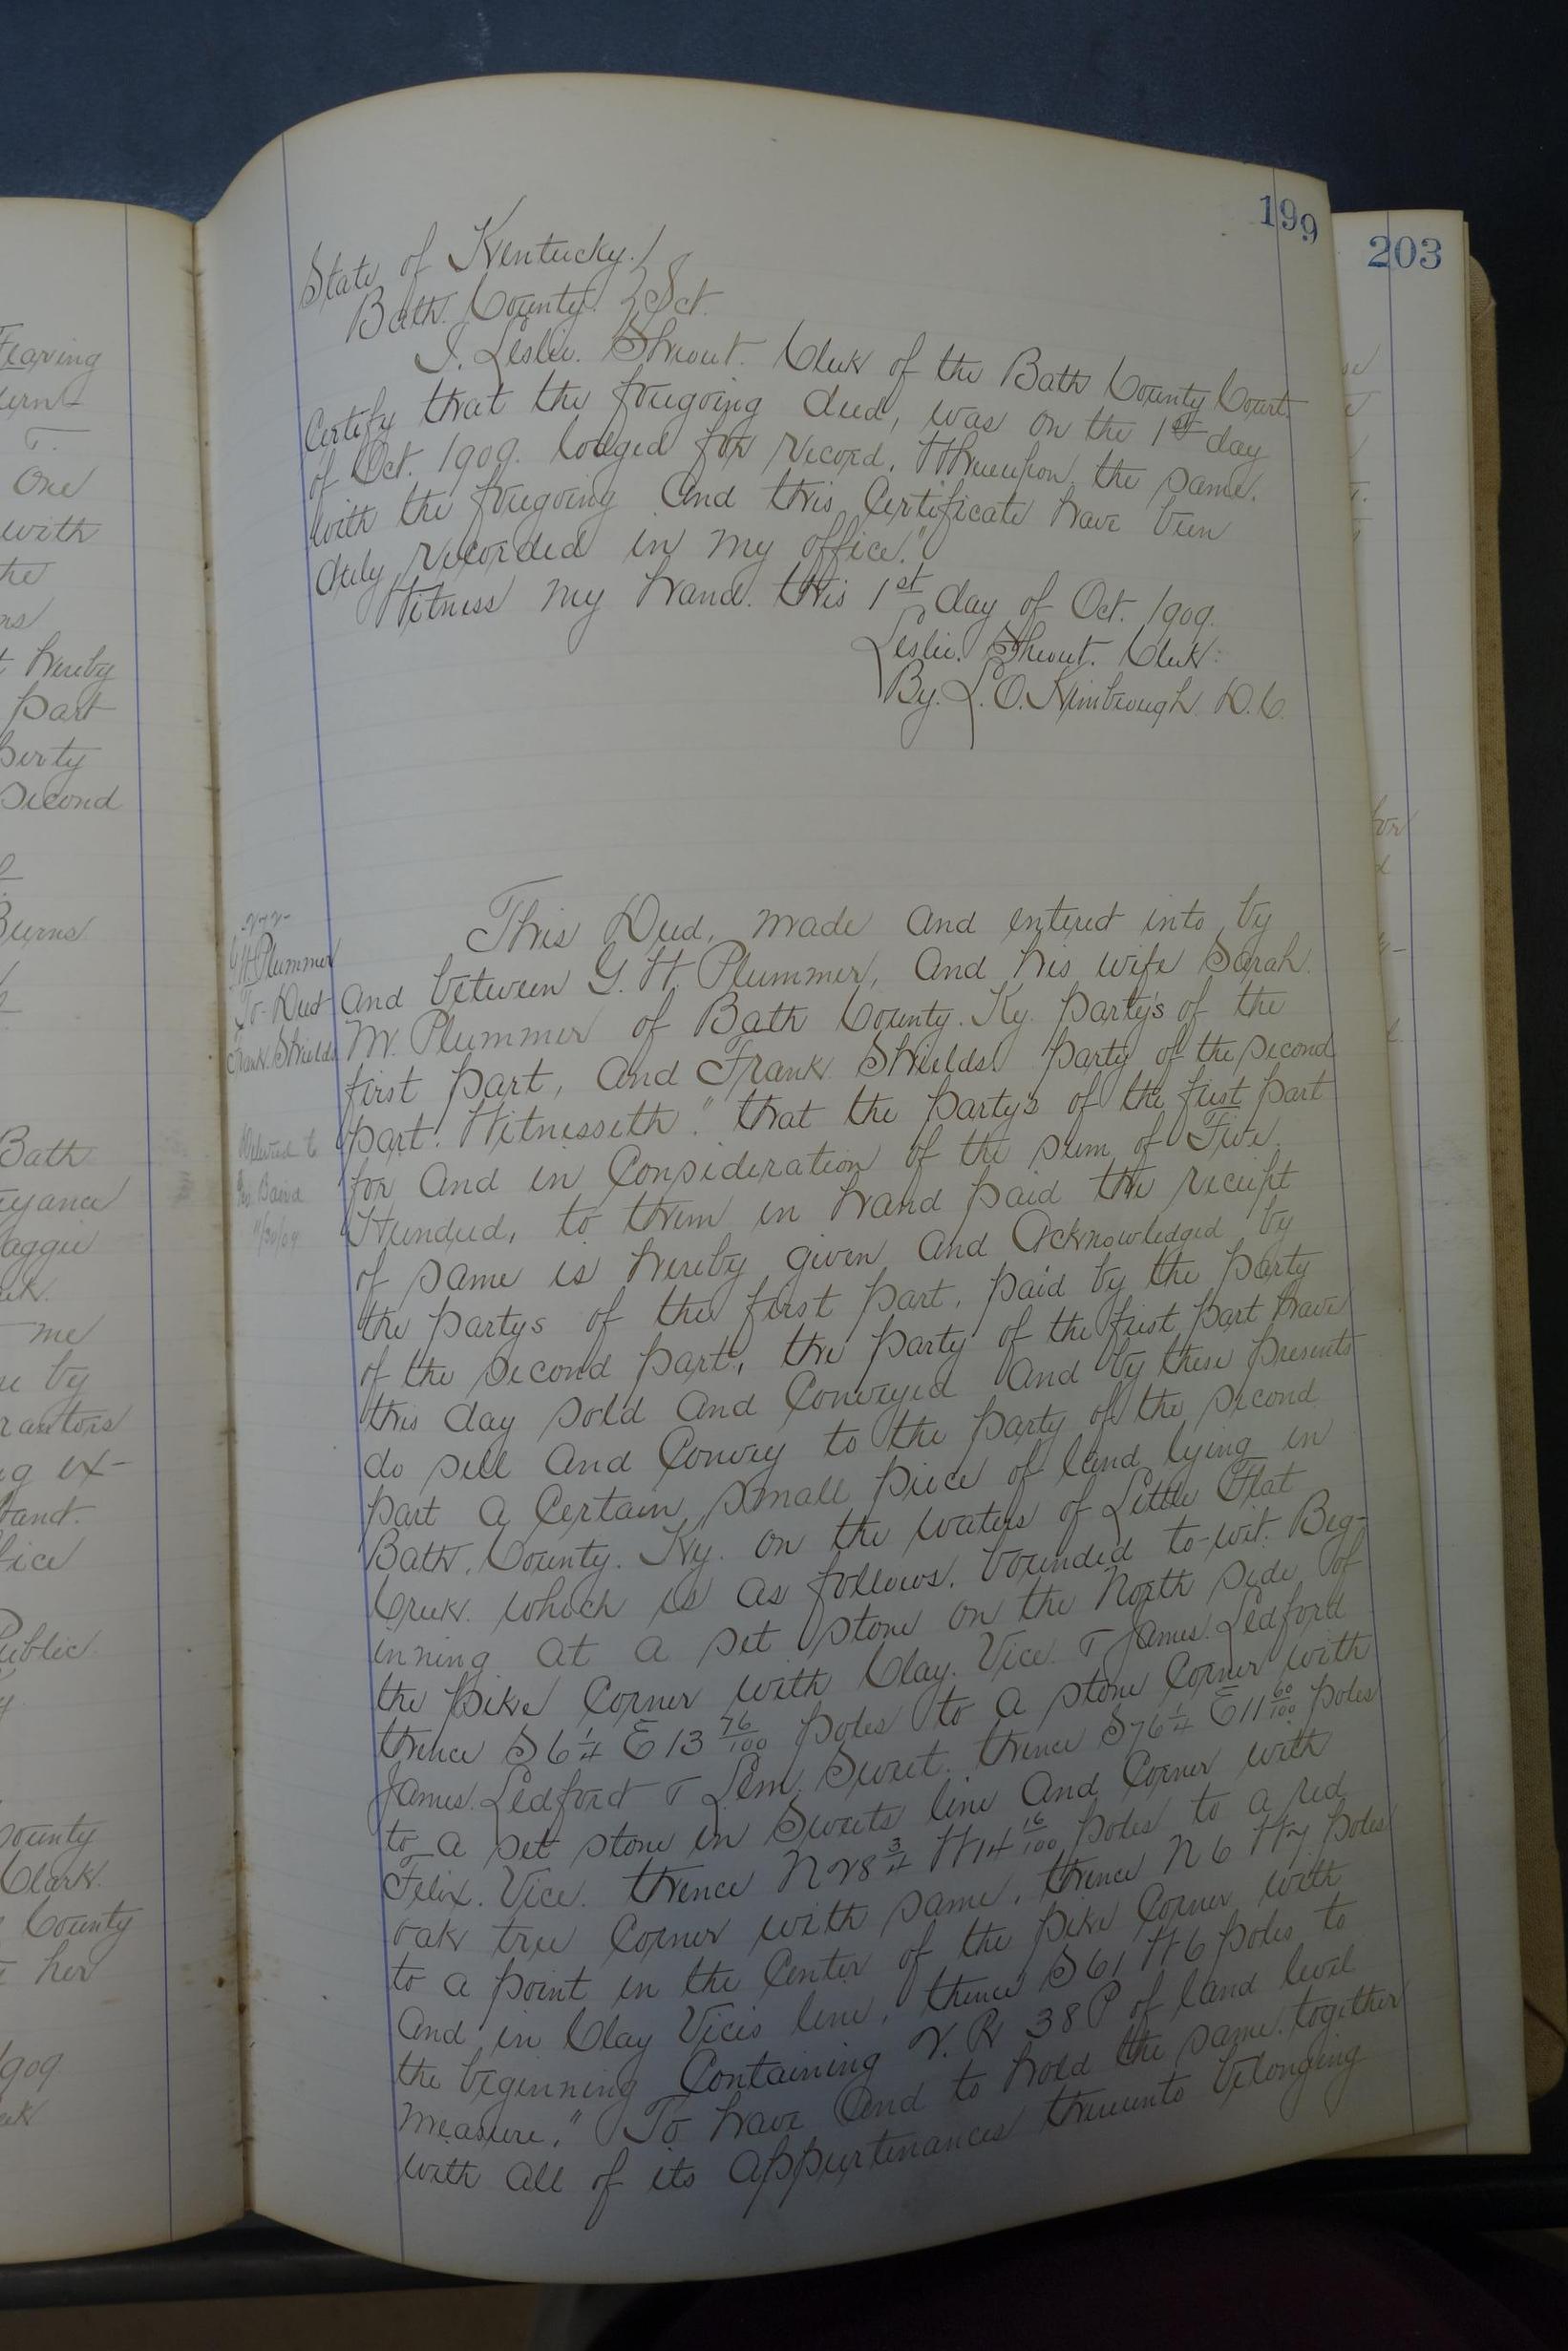 199
State of Kentucky.
Bath. County. Sct.
I. Leslie. Shrout. Clerk of the Bath County Court.
Certify that the foregoing deed, was on the 1st day
of Oct. 1909. lodged for record. Whereupon, the same.
with the foregoing and this Certificate have been
duly recorded in my office."
Witness my hand. this 1st day of Oct. 1909.
Leslie. Shrout. Clerk.
By. L. O. Kimbrough D. C.
G. H. Plummer
To-Deed
Frank. Shields
Delivered to
Baird
11/30/09
This Deed, made and entered into by
and between G. H. Plummer, and his wife Sarah.
M. Plummer of Bath County. Ky. party's of the
first part, and Frank Shields. party of the second
part. Witnesseth." that the partys of the first part
for and in Consideration of the sum of Five.
Hundred, to them in hand paid the receipt
of same is hereby given and acknowledged by
the partys of the first part, paid by the party
of the second part, the party of the first part have
this day sold and Conveyed and by these presents
do sell and Convey to the party of the second
part a Certain small piece of land lying in
Bath. County. Ky. on the waters of Little Flat
Creek. which is as follows. bounded to-wit: Beg-
inning at a set stone on the North side of
the pike Corner with Clay. Vice. & James. Ledford
thence S 6 1/4 E 13 76/100 poles to a stone Corner with
James. Ledford & Lem. Swart. thence S 76 1/4 E 11 60/100 poles
to a set stone in Swarts line and Corner with
Felix. Vice. thence N 28 3/4 W 14 16/100 poles to a red
oak tree Corner with same, thence N 6 W 7 poles
to a point in the Center of the pike Corner with
and in Clay Vices line, thence S 61 W 6 poles to
the beginning Containing 2. R 38 P of land level
measure." To have and to hold the same. together
with all of its appurtenances thereunto belonging
203
Fearing
One
with
the
hereby
part
second
Burns
Bath
me
by
ex-
fice
Public
County
Clark.
County
her
1909